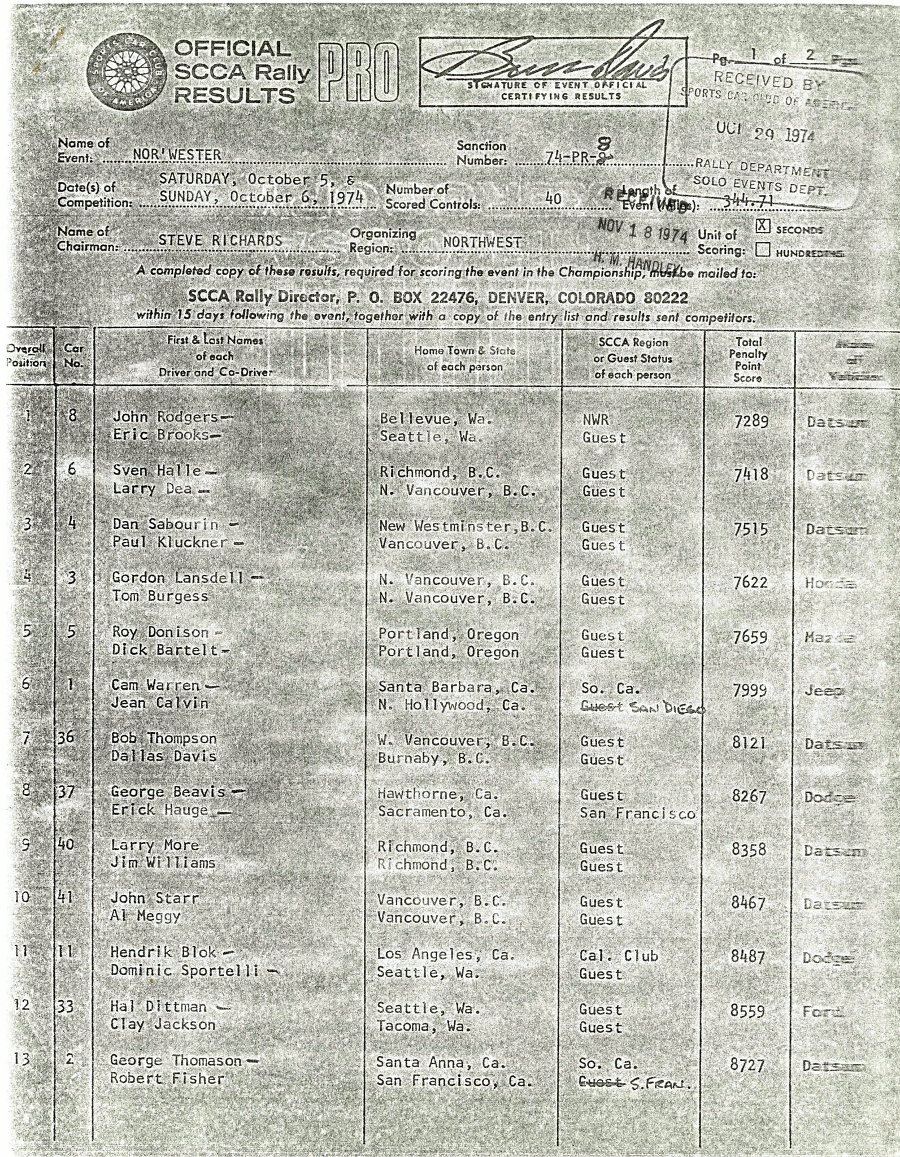 OFFICIAL
SCCA Rally
RESULTS
PRO
SPORTS CAR CLUB
OF AMERICA
SIGNATURE OF EVENT OFFICIAL
CERTIFYING RESULTS
Pg. 1 of 2
RECEIVED BY
SPORTS CAR CLUB OF AMERICA
OCT 29 1974
RALLY DEPARTMENT
SOLO EVENTS DEPT.
Name of Event: NOR'WESTER
Sanction Number: 74-PR-8
Date(s) of Competition: SATURDAY, October 5, &
SUNDAY, October 6, 1974
Number of Scored Controls: 40
Length of Event (Miles): 344.71
RECEIVED
NOV 18 1974
H. M. HANDLEY
Name of Chairman: STEVE RICHARDS
Organizing Region: NORTHWEST
Unit of Scoring: X SECONDS
HUNDREDTHS
A completed copy of these results, required for scoring the event in the Championship, must be mailed to:
SCCA Rally Director, P. O. BOX 22476, DENVER, COLORADO 80222
within 15 days following the event, together with a copy of the entry list and results sent competitors.
Overall Position
Car No.
First & Last Names of each Driver and Co-Driver
Home Town & State of each person
SCCA Region or Guest Status of each person
Total Penalty Point Score
1 8 John Rodgers— Bellevue, Wa. NWR 7289 Datsun
Eric Brooks— Seattle, Wa. Guest
2 6 Sven Halle — Richmond, B.C. Guest 7418 Datsun
Larry Dea — N. Vancouver, B.C. Guest
3 4 Dan Sabourin — New Westminster,B.C. Guest 7515 Datsun
Paul Kluckner — Vancouver, B.C. Guest
4 3 Gordon Lansdell — N. Vancouver, B.C. Guest 7622 Honda
Tom Burgess N. Vancouver, B.C. Guest
5 5 Roy Donison — Portland, Oregon Guest 7659 Mazda
Dick Bartelt— Portland, Oregon Guest
6 1 Cam Warren — Santa Barbara, Ca. So. Ca. 7999 Jeep
Jean Calvin N. Hollywood, Ca. Guest SAN DIEGO
7 36 Bob Thompson W. Vancouver, B.C. Guest 8121 Datsun
Dallas Davis Burnaby, B.C. Guest
8 37 George Beavis — Hawthorne, Ca. Guest 8267 Dodge
Erick Hauge — Sacramento, Ca. San Francisco
9 40 Larry More Richmond, B.C. Guest 8358 Datsun
Jim Williams Richmond, B.C. Guest
10 41 John Starr Vancouver, B.C. Guest 8467 Datsun
Al Meggy Vancouver, B.C. Guest
11 11 Hendrik Blok — Los Angeles, Ca. Cal. Club 8487 Dodge
Dominic Sportelli — Seattle, Wa. Guest
12 33 Hal Dittman — Seattle, Wa. Guest 8559 Ford
Clay Jackson Tacoma, Wa. Guest
13 2 George Thomason— Santa Anna, Ca. So. Ca. 8727 Datsun
Robert Fisher San Francisco, Ca. Guest S.FRAN.